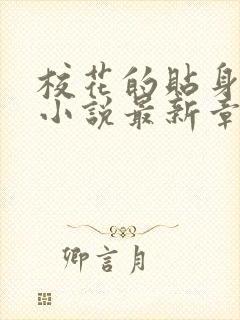 校花的貼身
小說最新章
卿言月